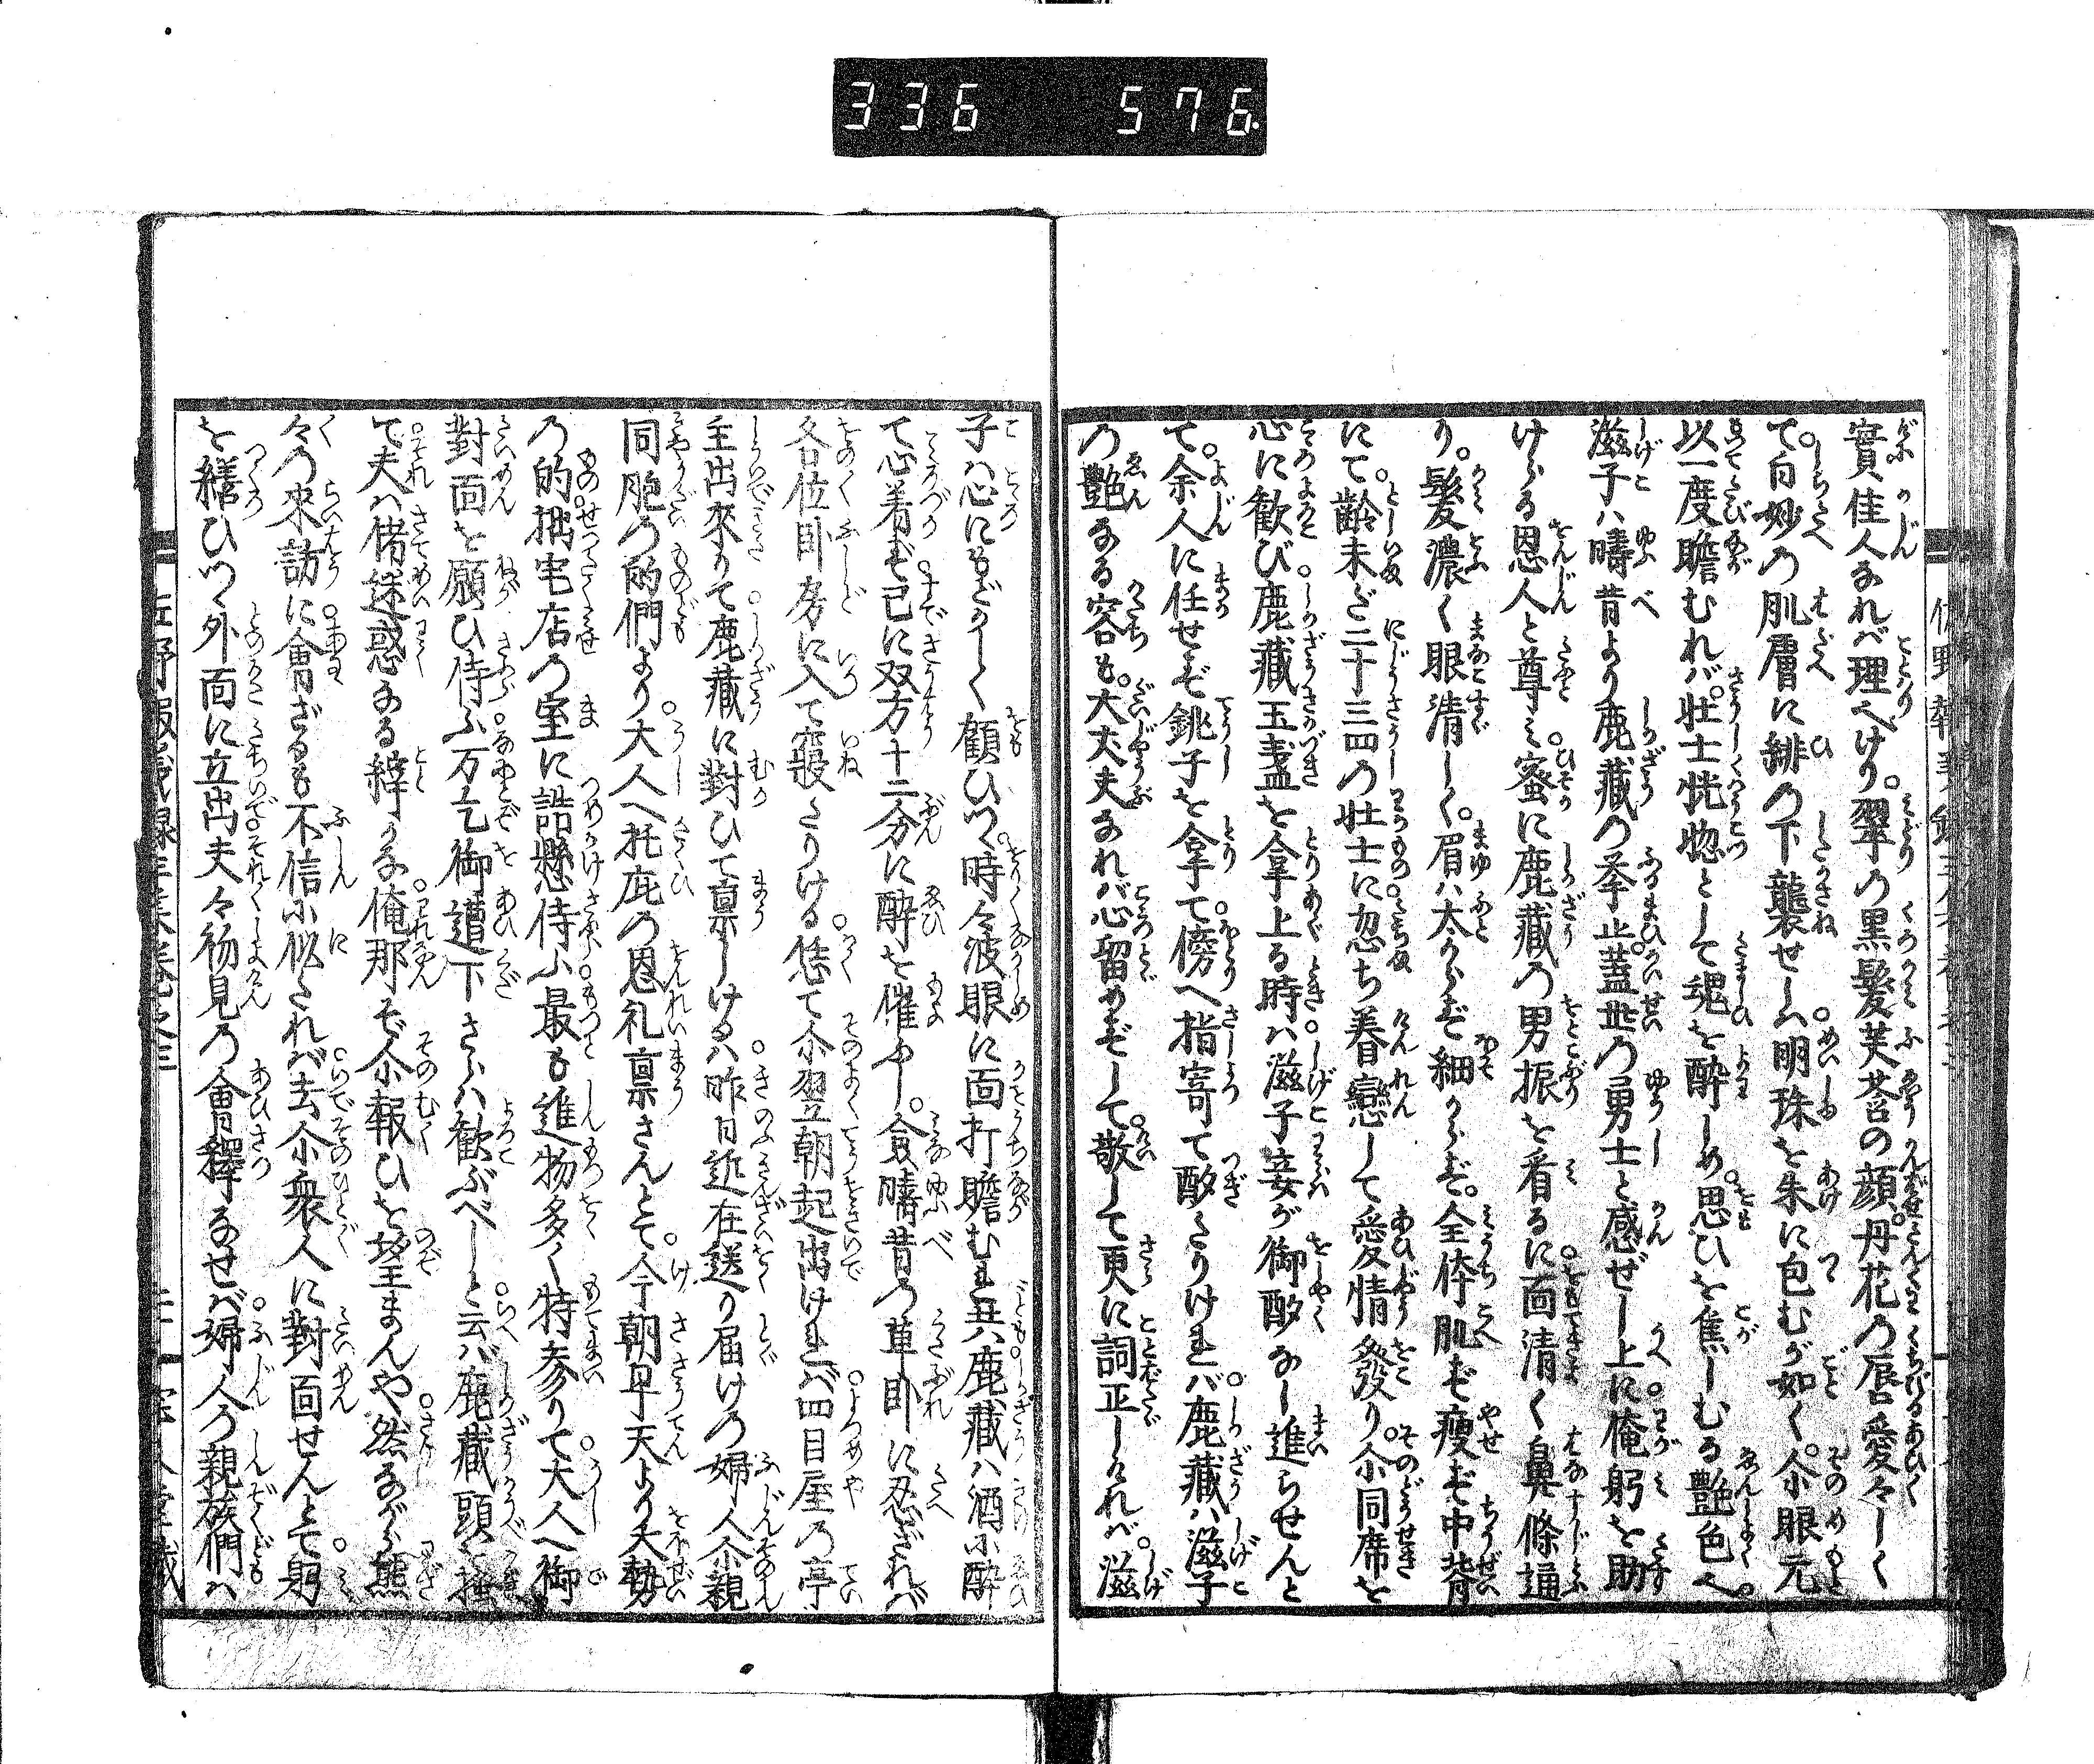 336 576
實佳人なれバ理りへけり。翠の黒髪芙蓉の顔。丹花の唇愛々しく
て。白妙の肌膚に緋の下襲せしハ。明珠を朱に包むが如く。尓眼元
以一度瞻むれバ。壮士恍惚として魂を酔しめ。思ひを焦しむる艶色へ。
滋子ハ疇昔より鹿藏の挙止。蓋世の勇士と感ぜし上に。俺躬を助
けらる恩人と尊ミ。蜜に鹿藏の男振を看るに。面清く鼻條通
り。髪濃く眼清しく。眉ハ太からず細からず。全体肌ず瘦ず中背
にて。齢未ざ二十三四の壮士に。忽ち眷戀して愛情發り。尓同席を
心に歓び。鹿藏玉盞を拿上る時ハ。滋子妾が御酌なし進らせんと
て。余人に任せず銚子を拿て。傍へ指寄て酌たりけれバ。鹿藏ハ滋子
の艶なる容も。大丈夫なれバ心留めずして。敬して更に詞正しけれバ。滋
子ハ心にもどかしく顧ひつゝ。時々波眼に面打瞻むれ共。鹿藏ハ酒に酔
て心着ず。已に双方十二分に酔を催ふし。僉疇昔の草臥に忍ざれバ
各位臥房に入て寝たりける。恁て尓翌朝起出けれバ。四目屋の亭
主出來りて。鹿藏に對ひて禀しけるハ。昨日近在送り届けの婦人尓親
同胞の的們より。大人へ托庇の恩礼禀さんとて。今朝早天より大勢
の的。拙宅店の室に詰懸侍ふ。最も進物多く特参りて。大人へ御
對面を願ひ侍ふ。万乞御遭下さらハ歓ぶべしと。云バ鹿藏頭を掻
て。夫ハ偖迷惑なる縡かな。俺那ぞ尓報ひを望まんや。然ながら態
々の来訪に。會ざるも不信に似たれバ。去尓衆人に對面せんとて。躬
を繕ひつゝ外面に立出。夫々初見の會釋なせバ。婦人の親族們ハ